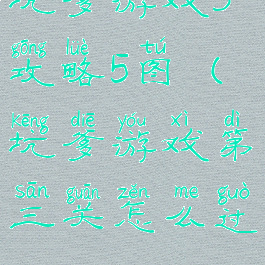 坑爹游戏5
gōng lüè tú
攻略5图（
kēng diē yóu xì dì
坑爹游戏第
sān guān zěn me guò
三关怎么过